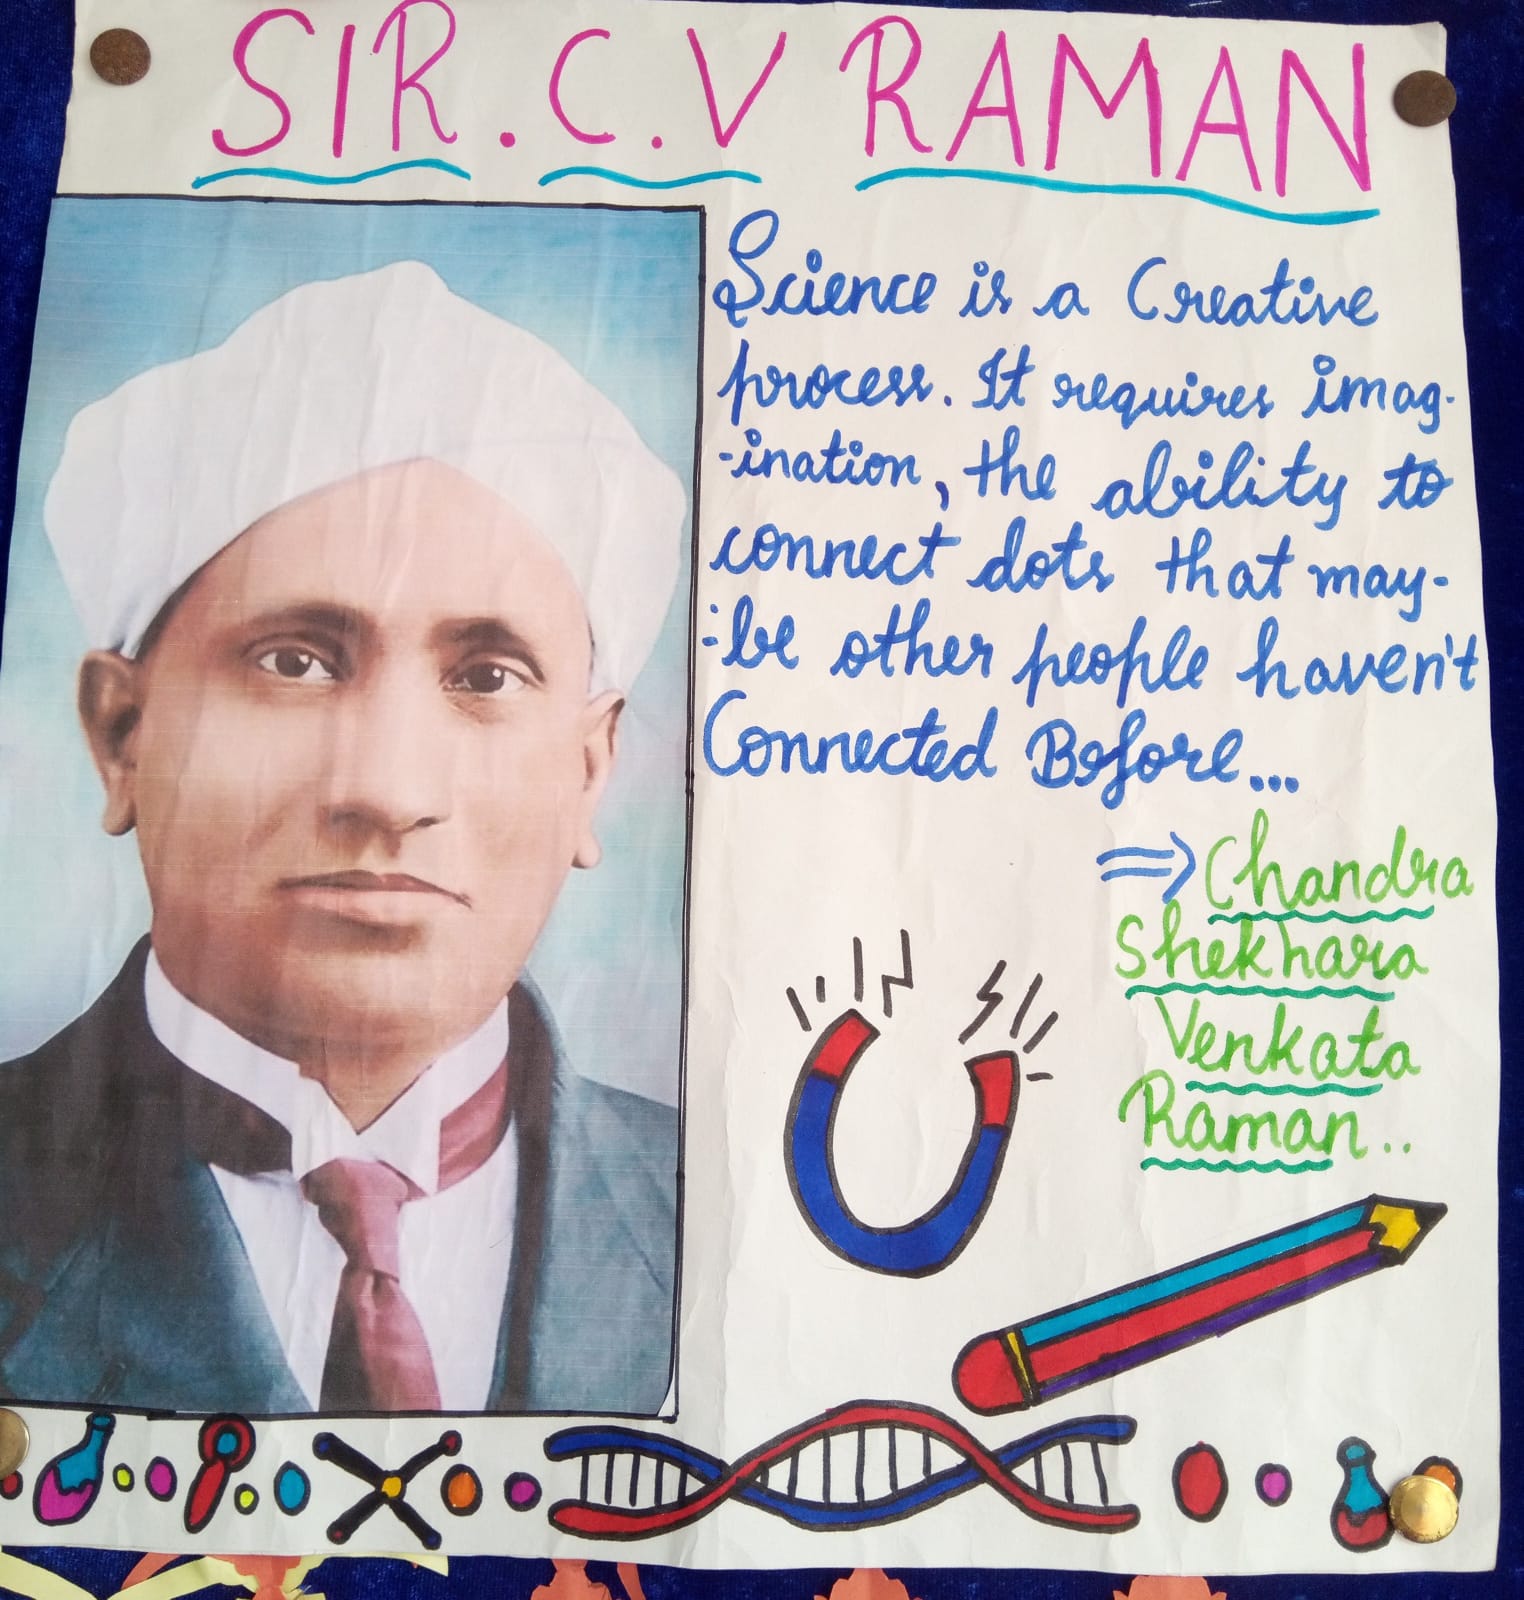 SIR. C. V RAMAN
Science is a Creative
process. It requires imag-
-ination, the ability to
connect dots that may-
-be other people haven't
Connected Before...
⇒ Chandra
Shekhara
Venkata
Raman..